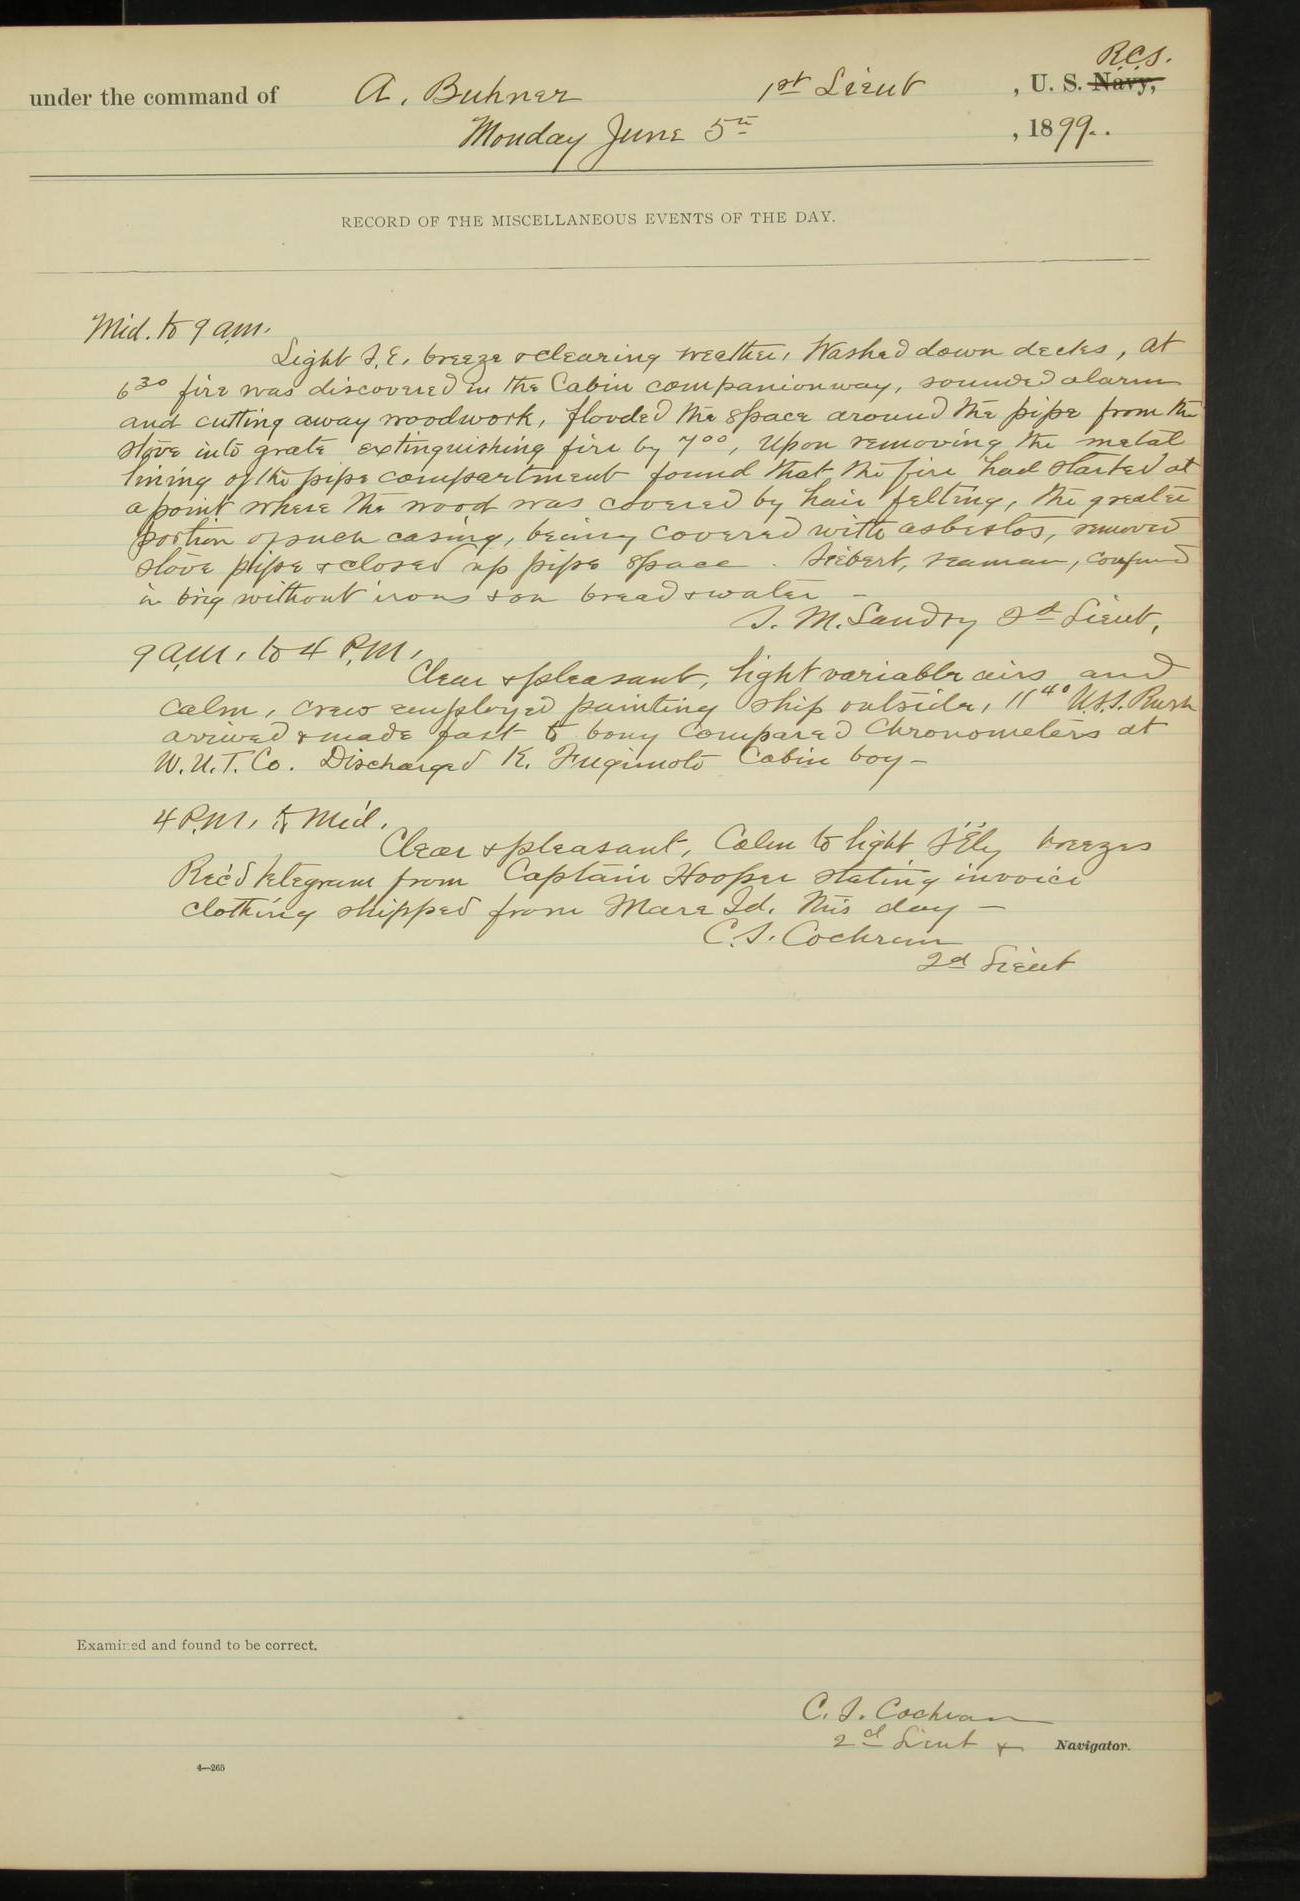 R.C.S.
under the command of A. Buhner 1st Lieut , U. S. Navy,
Monday June 5th , 1899.
RECORD OF THE MISCELLANEOUS EVENTS OF THE DAY.
Mid. to 9 a.m.
Light S.E. breeze & clearing weather, Washed down decks, at
6 30 fire was discovered in the Cabin companionway, sounded alarm
and cutting away woodwork, flooded the space around the pipe from the
stove into grate extinguishing fire by 7 00, Upon removing the metal
lining of the pipe compartment found that the fire had started at
a point where the wood was covered by hair felting, the greater
portion of such casing, being covered with asbestos, removed
stove pipe & closed up pipe space. Siebert, seaman, confined
in brig without irons & on bread & water –
S. M. Landry 2d Lieut,
9 a.m. to 4 P.M.
Clear & pleasant, light variable airs and
calm, crew employed painting ship outside, 11 40 U.S.S. Rush
arrived & made fast to bouy Compared Chronometers at
W.U.T. Co. Discharged K. Fugimoto Cabin boy –
4 P.M. to Mid.
Clear & pleasant, Calm to light S'Ely breezes
Rec'd telegram from Captain Hooper stating invoice
clothing shipped from Mare Id. this day –
C. S. Cochran
2d Lieut
Examined and found to be correct.
C. S. Cochran
2d Lieut & Navigator.
4—265